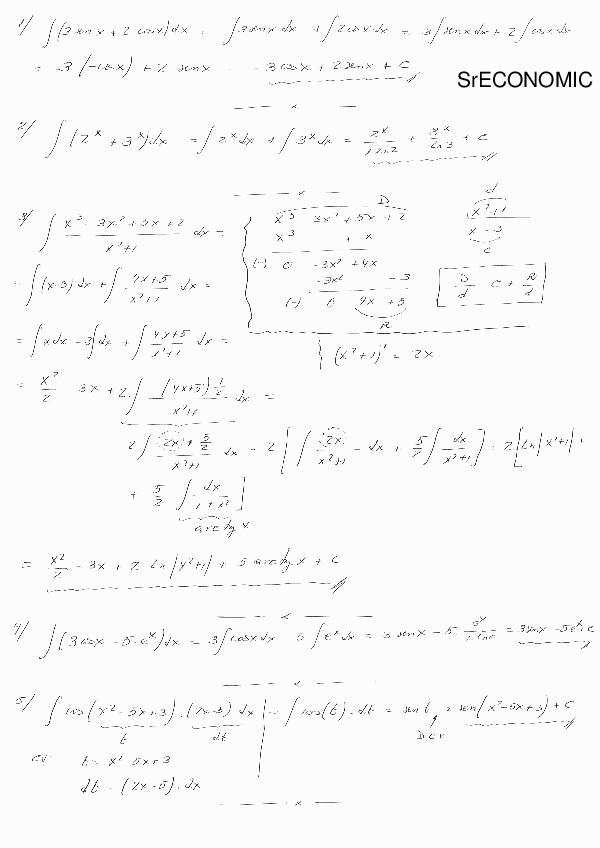 1/ ∫(3 senx + 2 cosx) dx = ∫3 senx dx + ∫2 cosx dx = 3∫senx dx + 2∫cosx dx
= 3 (-cosx) + 2 senx = -3 cosx + 2 senx + C
SrECONOMIC
2/ ∫(2^x + 3^x) dx = ∫2^x dx + ∫3^x dx = 2^x/(1·Ln2) + 3^x/Ln3 + C
3/ ∫ (x³ - 3x² + 5x + 2)/(x²+1) dx =
D
x³ - 3x² + 5x + 2
x³ + x
(-) 0 -3x² + 4x
-3x² - 3
(-) 0 4x + 5
R
d
x²+1
x - 3
C
D/d = C + R/d
= ∫(x-3) dx + ∫ (4x+5)/(x²+1) dx =
= ∫x dx - 3∫dx + ∫ (4x+5)/(x²+1) dx =
(x²+1)' = 2x
= x²/2 - 3x + 2∫ (4x+5)·1/2 /(x²+1) dx =
2∫ (2x + 5/2)/(x²+1) dx = 2[∫ 2x/(x²+1) dx + 5/2 ∫ dx/(x²+1)] = 2[Ln|x²+1| +
+ 5/2 ∫ dx/(1+x²)]
arctg x
= x²/2 - 3x + 2 Ln|x²+1| + 5 arctg x + C
4/ ∫(3 cosx - 5·e^x) dx = 3∫cosx dx - 5∫e^x dx = 3 senx - 5· e^x/(1·Lne) = 3senx - 5e^x + C
5/ ∫cos(x² - 5x + 3)·(2x-5) dx = ∫cos(t)·dt = sen t = sen(x² - 5x + 3) + C
t dt
DCV
CV: t = x² - 5x + 3
dt = (2x - 5)·dx